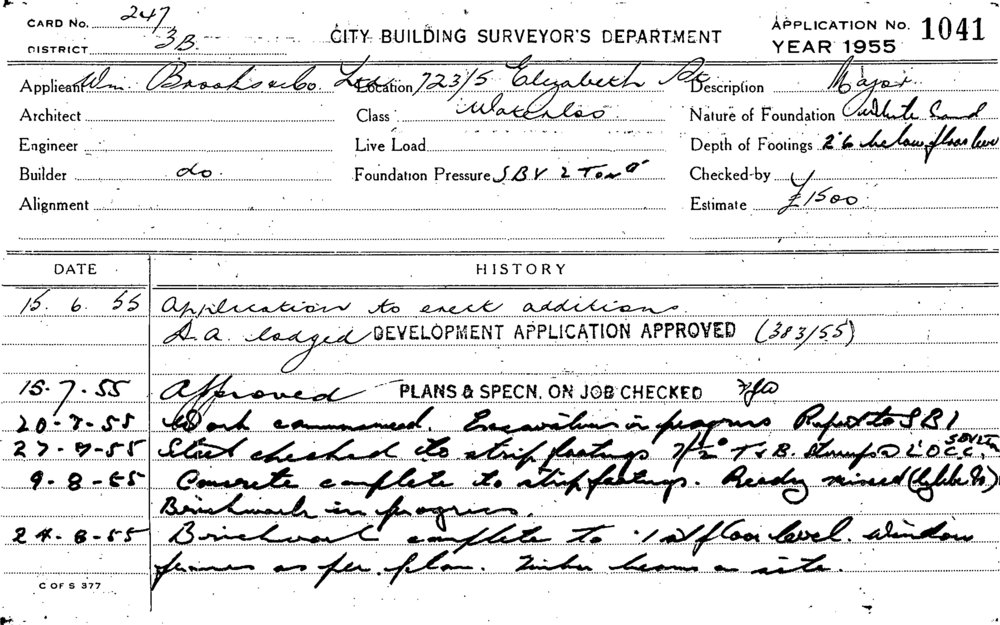 CARD No. 247
DISTRICT 3B.
CITY BUILDING SURVEYOR'S DEPARTMENT
APPLICATION No. 1041
YEAR 1955
Applicant Wm. Brooks & Co. Ltd. Location 723/5 Elizabeth St. Description Major
Architect Class Waterloo Nature of Foundation White Sand
Engineer Live Load Depth of Footings 2'6 below floor level
Builder do. Foundation Pressure SBV 2 Ton Checked by
Alignment Estimate £1500
DATE HISTORY
15. 6. 55 Application to erect additions
D.A. lodged DEVELOPMENT APPLICATION APPROVED (383/55)
15.7.55 Approved PLANS & SPECN. ON JOB CHECKED
20-7-55 Work commenced. Excavations in progress Report to SBI
27-7-55 Steel checked to strip footings T & B. Stirrups
9-8-55 Concrete complete to strip footings. Ready mixed
Brickwork in progress.
24-8-55 Brickwork complete to 1st floor level. Window
frames as per plan. Timber beams on site.
C OF S 377